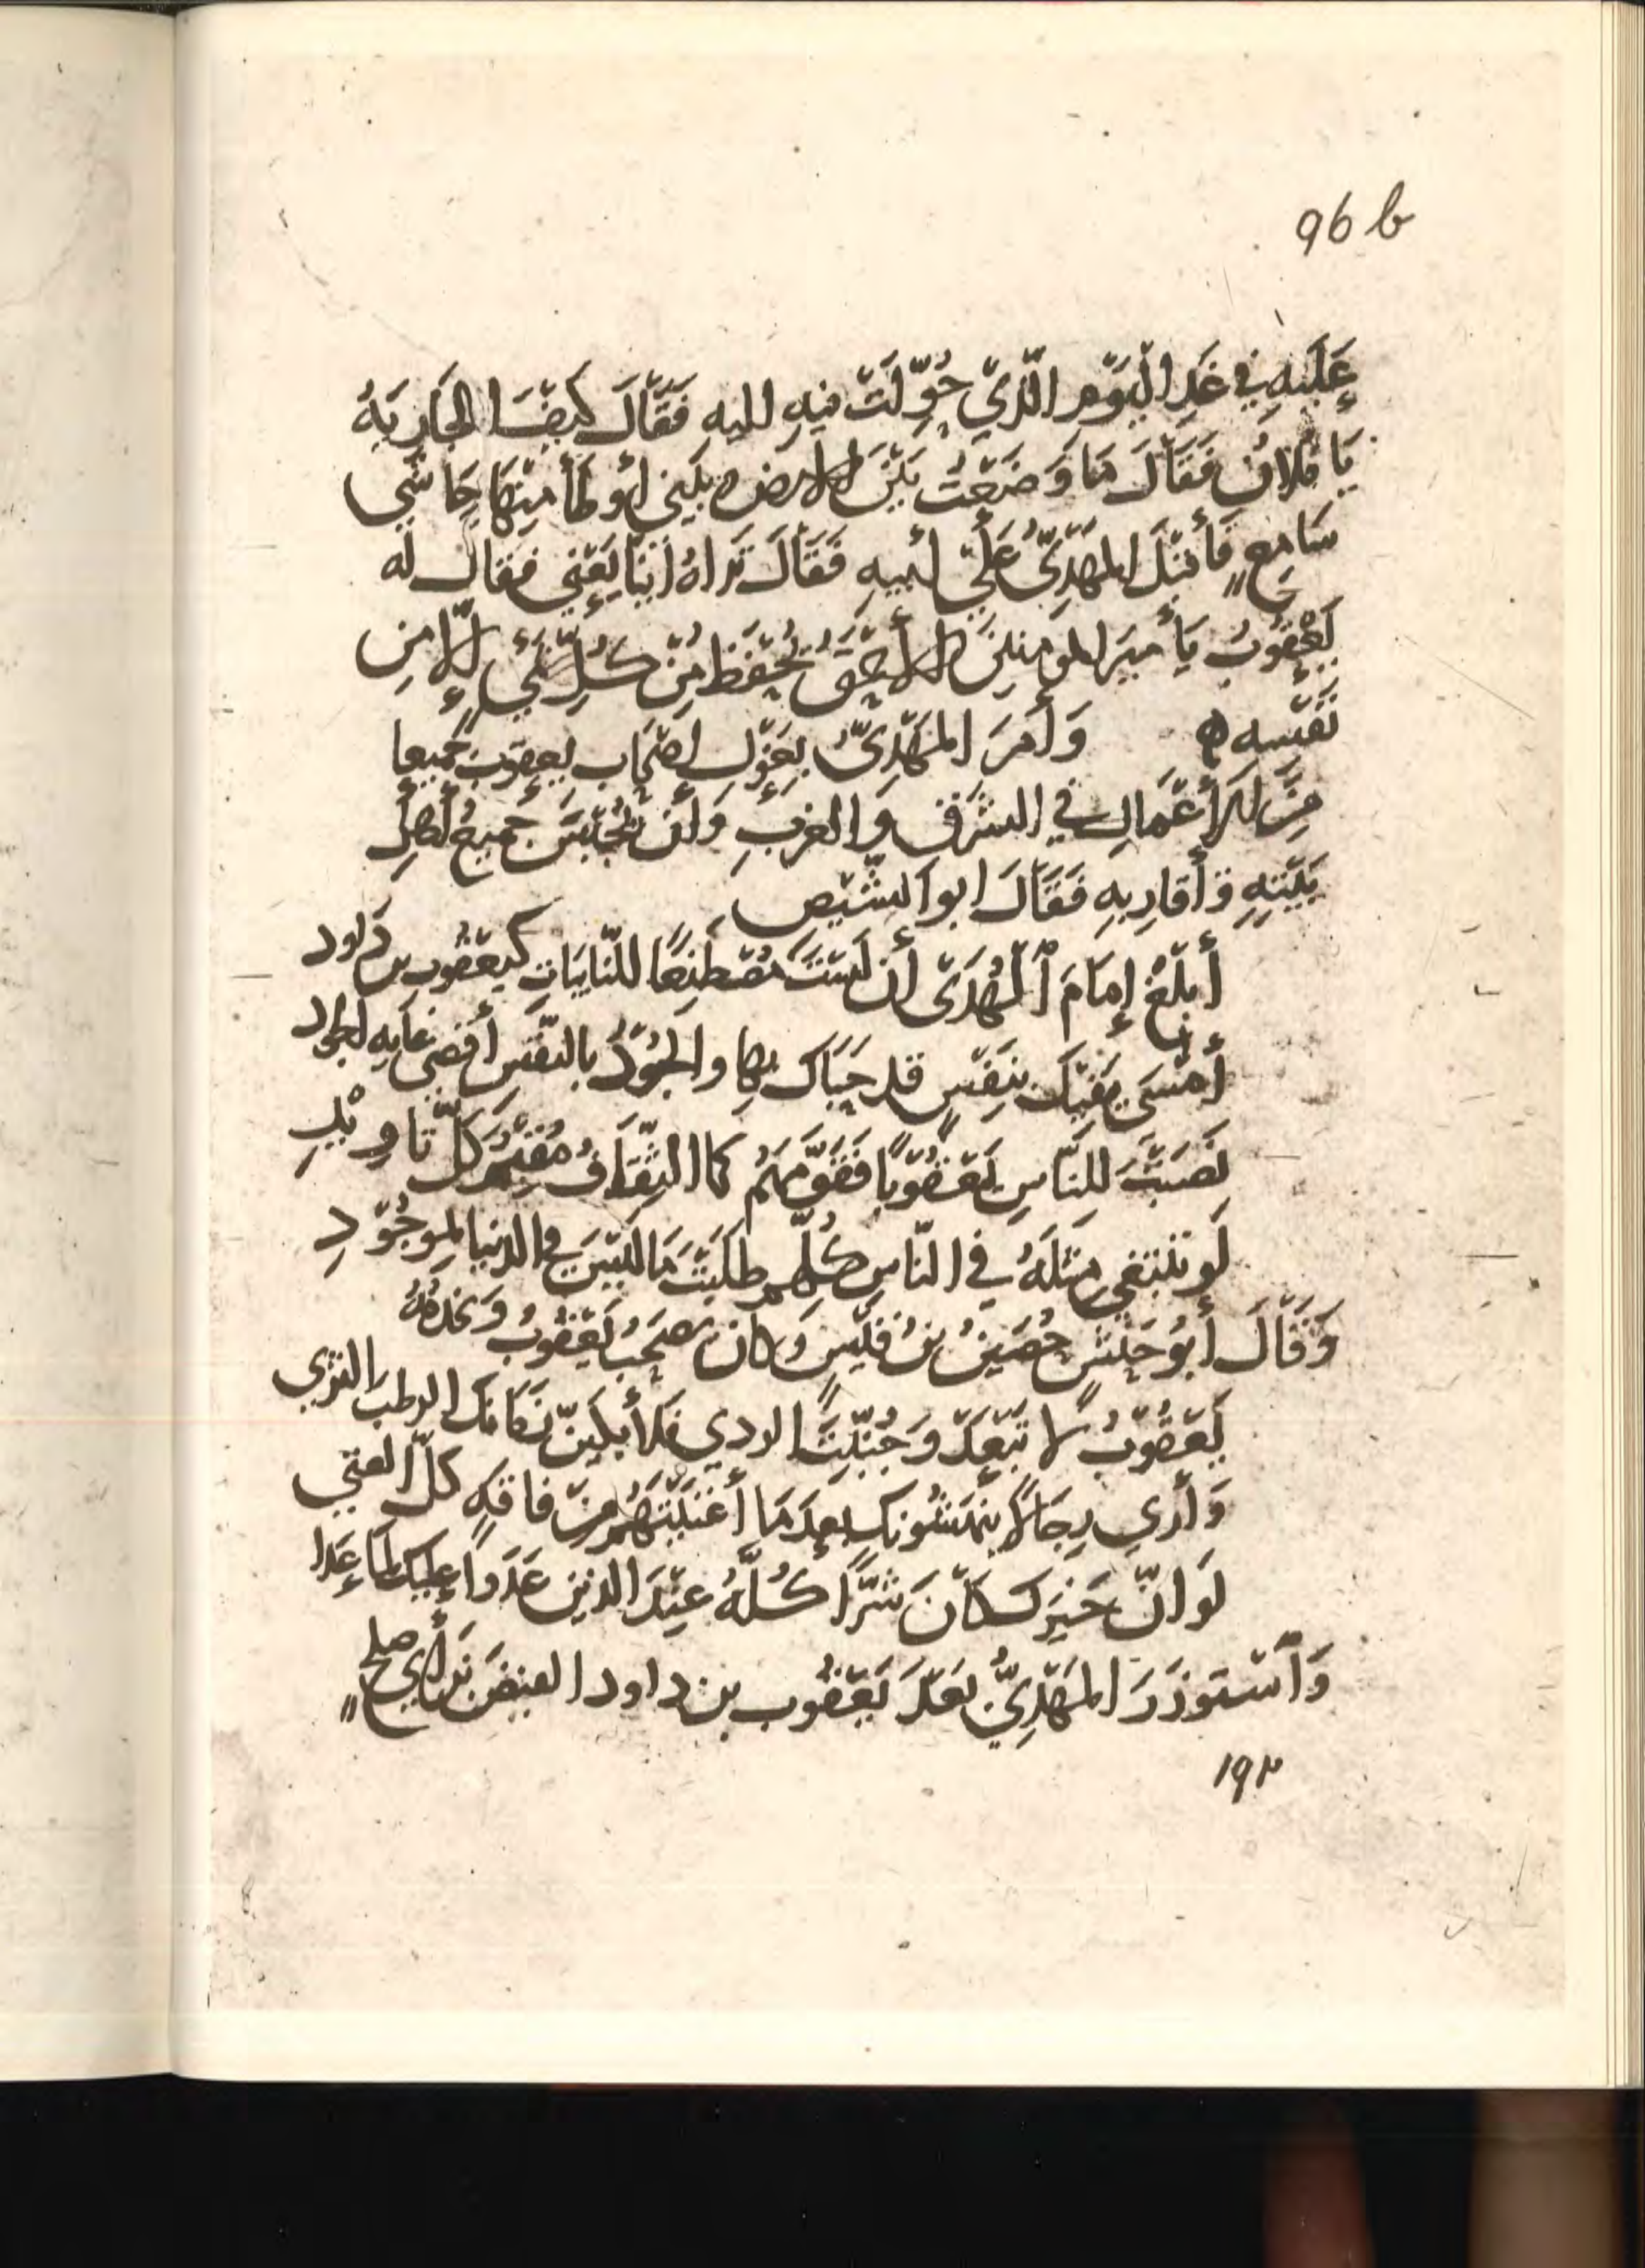 96 b
عَلَيهِ في غَدِ اليَوْمِ الّذيْ حُوِّلَتْ فيهِ اليهِ فَقَالَ كيفَ الجَارِيَةُ
يَا فلانُ فَقَالَ مَا وَضَعْتُ بَيْنَ الارض وبَيني أَوطَأ مِنْهَا حَاشى
سَامِعٍ فَأَقبَلَ المَهْدِيُّ عَليْ أبيهِ فَقَالَ تَراهُ أنّنا يَعْني فقال له
يَعْقُوبُ يَأميرَ المومنينَ الأَحْمَقُ يُحْفَظ مِنْ كُلِّ شَيءٍ إلّا مِن
نَفْسِهِ ه وَأَمَرَ المَهْدِيُّ بِعَزْلِ اصْحَاب يعقوب جميعا
مِنَ الأَعْمَالِ في الشَرْق والغربِ وَأن يُحْبَسَ جَميعُ أَهلِ
بَيْتِهِ وَأَقَارِبِهِ فَقَالَ ابو الشّيص
أَبلِغْ إِمَامَ ٱلْهُدَى أن لَسْتَ مُصْطَنِعًا للنّايبَاتِ كَيعقُوب بن دَاود
أَمْسَى يَقيكَ بِنَفْسٍ قد حَبَاكَ بِهَا والجُوْدُ بالنّفْسِ أَقصَى غَايه الجود
نَصَبْتَ لِلنَّاسِ يَعْقُوبًا فَقَوَّمَهُم كما الثِّقَافُ مُقيْمٌ كلّ تاوِيْلِ
لَو تبتغي مِثلَهُ في النّاسِ كُلِّهِم طلبْتَ مَا لَيْسَ في الدنيا بمَوجُوْدِ
وَقَالَ أَبُو حَنَشٍ حُصَينُ بنُ قَيْسٍ وَكان يَصْحَبُ يَعْقُوبُ وَيخدمُهُ
يَعْقُوْبُ لا تَبْعَدْ وَجُنّبْتَ الردي فلأَبكيَنّ زَمَانَك الرطب الثري
وَأري رِجَالًا يَنْهَشُونَك بعدَ مَا أَغنَيْتَهُم مِنْ فاقهٍ كلّ الغني
لَو انّ خَيرَك كانَ شَرًّا كُلَّهُ عِنْدَ الذين عَدَوا عليك لمَا عَدا
وَٱسْتَوزَرَ المَهْدِيُّ بَعْدَ يَعْقُوب بن داود الفيضَ بن أَبي صلحٍ
١٩٢